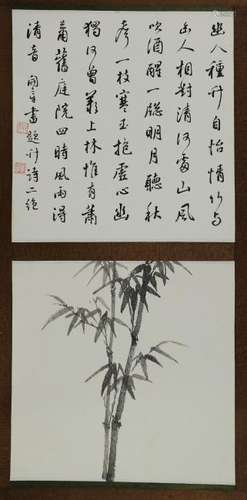 幽人種竹自怡情竹與
幽人相對清何處山風
吹酒醒一牕明月聽秋
聲一枝寒玉抱虛心幽
獨何曾羨上林惟有蕭
蕭舊庭院四時風雨得
清音 畫題竹詩二絕